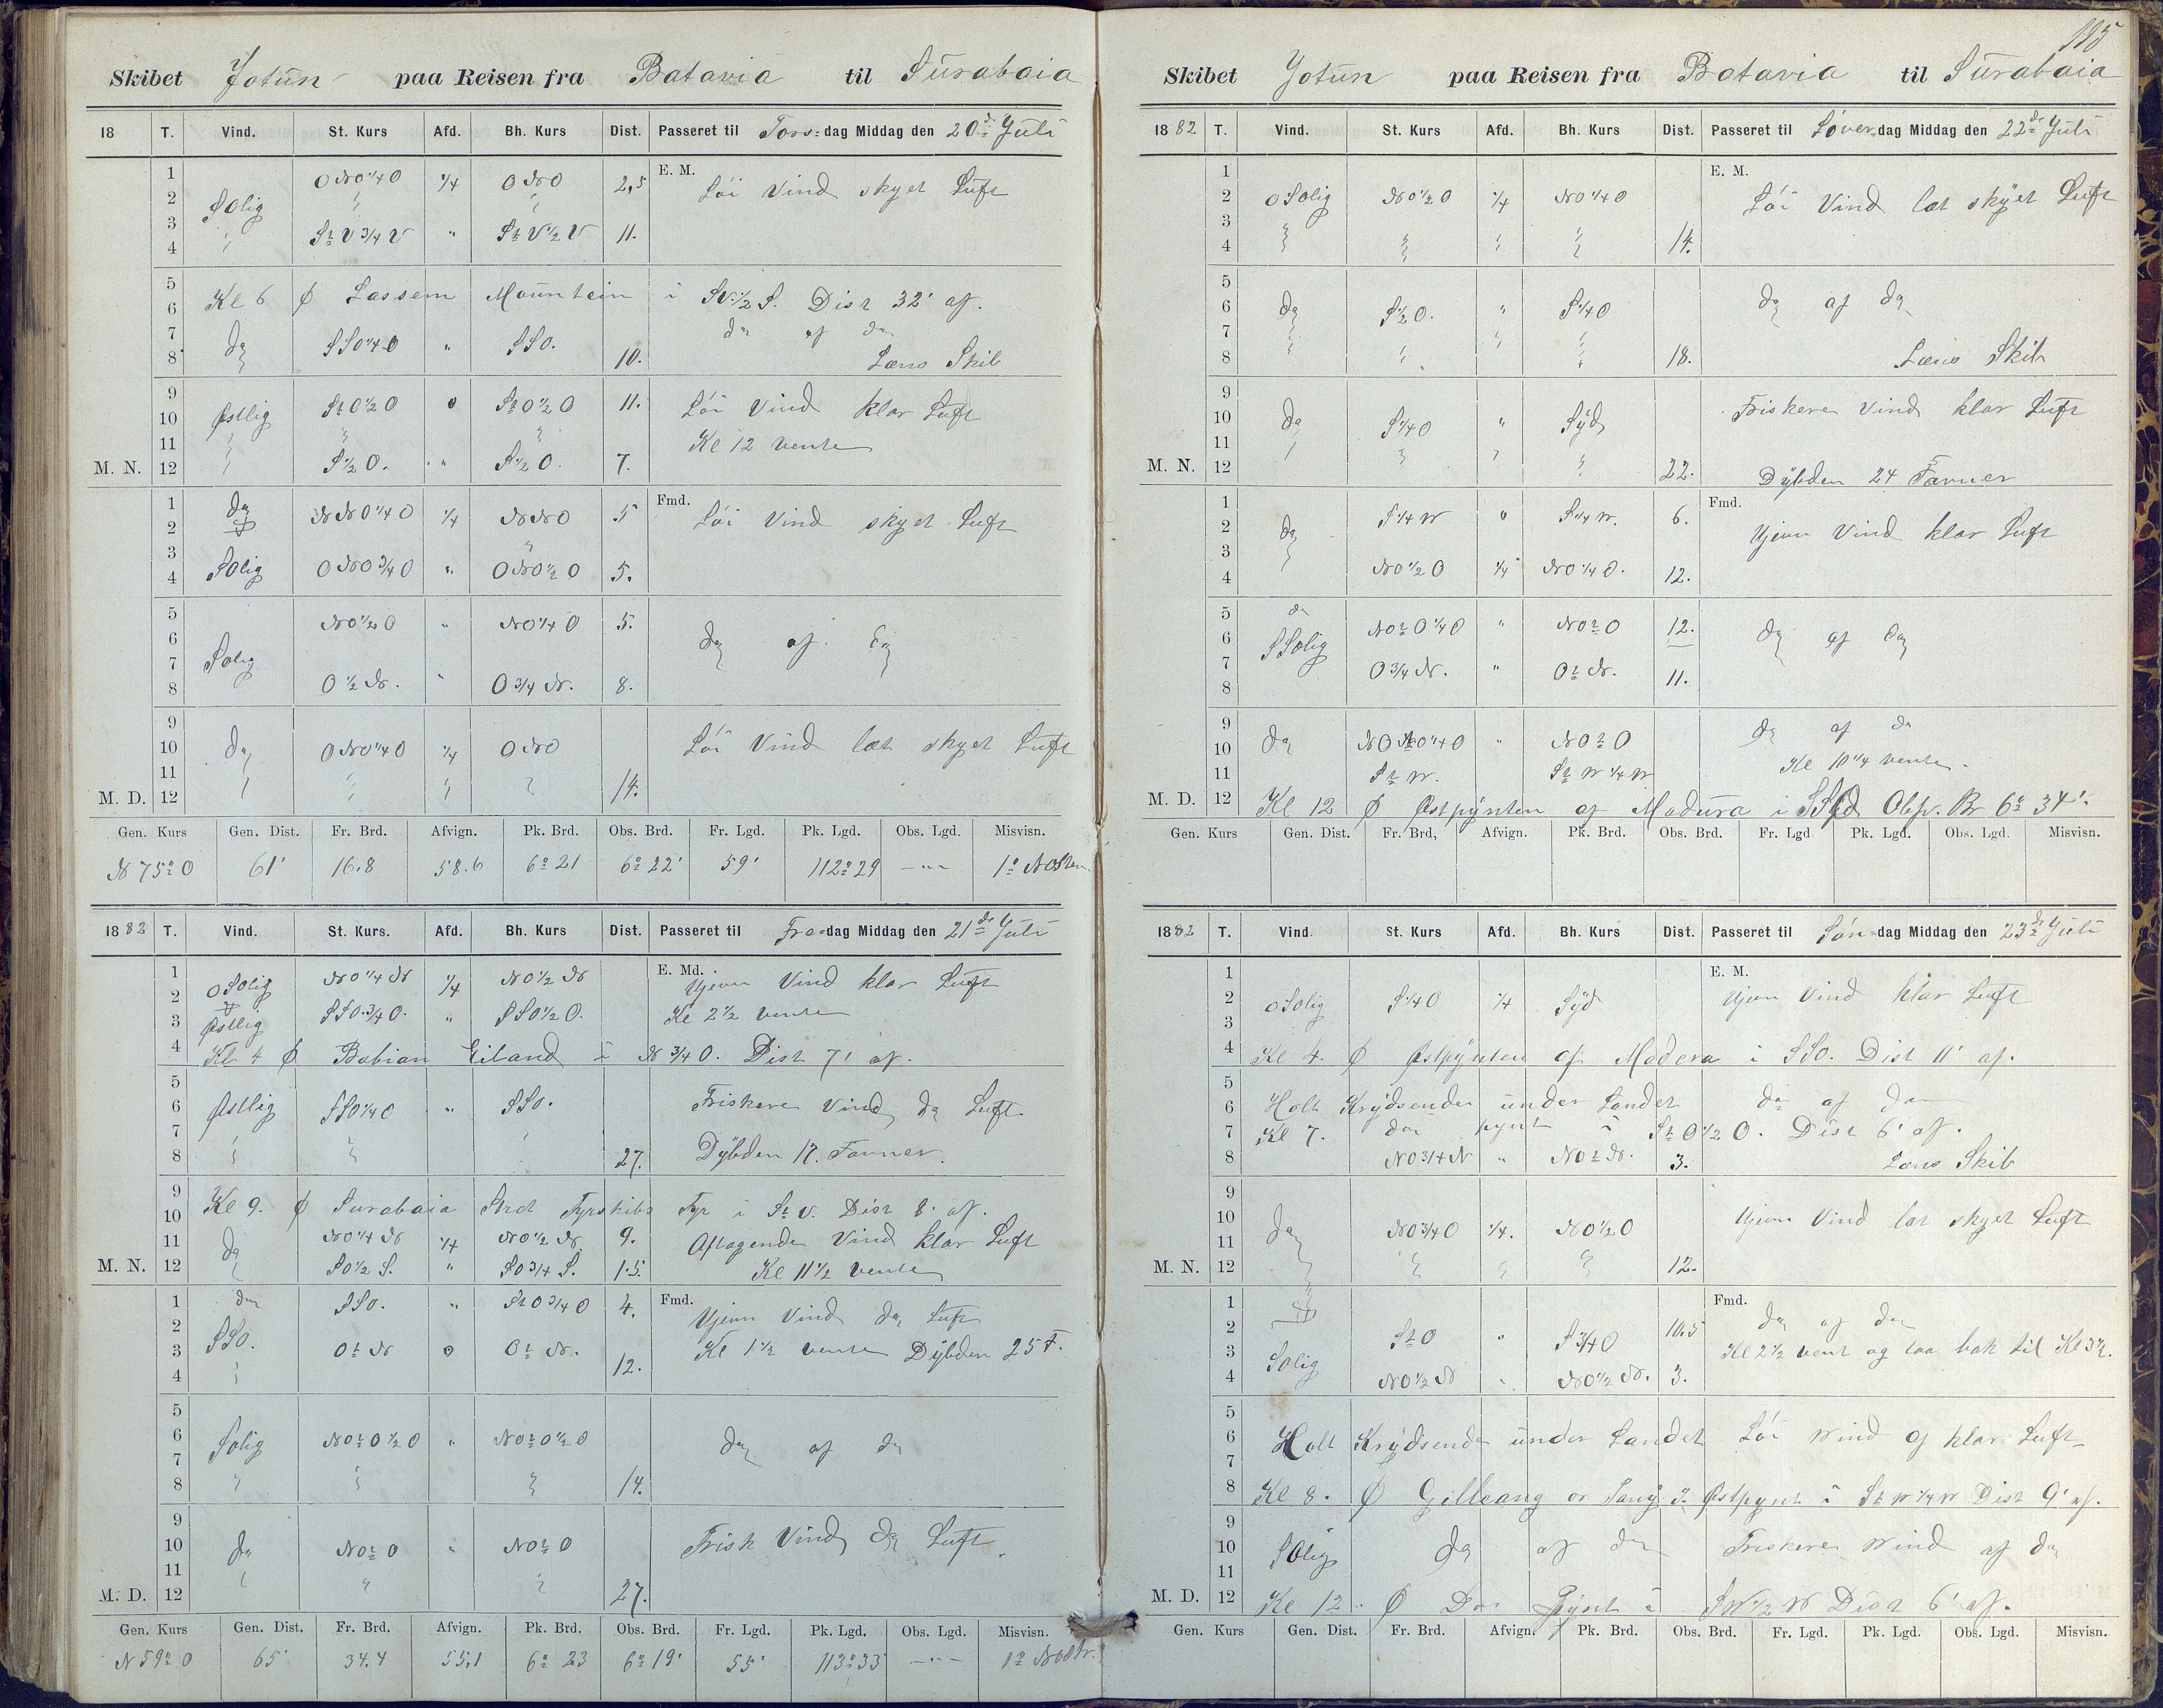 115
Skibet Jotun paa Reisen fra Batavia til Surabaia
18 T. Vind. St. Kurs Afd. Bh. Kurs Dist. Passeret til Tors=dag Middag den 20de Juli
1 ONO¼O ¼ ONO 2,5 E. M.
2 SOlig " " Löi Vind skyet Luft
3 StV¾V " StV½V 11.
4
5
6 Kl 6 Ø Lassem Mountain i SV½S. Dist 32' af.
7 do SSO¼O " SSO. do af do
8 10. Læns Skib
9 Östlig StO½O 0 StO½O 11. Löi Vind klar Luft
10
11 Kl 12 vente
M. N. 12 S½O. " S½O. 7.
1 do NNO¼O ¼ NNO 5 Fmd. Löi Vind skyet Luft
2
3 SOlig ONO¾O " ONO½O 5.
4
5 NO½O " NO¼O 5.
6 do af do
7 SOlig
8 O½N. " O¾N. 8.
9
10 do ONO¼O ¼ ONO Löi Vind let skyet Luft
11
M. D. 12 14.
Gen. Kurs Gen. Dist. Fr. Brd. Afvign. Pk. Brd. Obs. Brd. Fr. Lgd. Pk. Lgd. Obs. Lgd. Misvisn.
N 75° O 61' 16.8 58.6 6° 21 6° 22' 59' 112° 29 — " — 1° NOster
1882 T. Vind. St. Kurs. Afd. Bh. Kurs Dist. Passeret til Fre=dag Middag den 21de Juli
1 OSOlig NO¼N ¼ NO½N E. Md. Ujevn Vind klar Luft
2
3 Östlig SSO¾O. " SSO½O. Kl 2½ vente
4 Kl 4 Ø Babian Eiland i N¾O. Dist 7' af.
5
6 Östlig SSO¼O " SSO. Friskere Vind do Luft
7
8 27. Dybden 17. Favner.
9 Kl 9. Ø Surabaia Stret Fyrskibs Fyr i StV. Dist 8' af.
10
11 do NO¼N ¼ NO½N 9. Aftagende Vind klar Luft
M. N. 12 SO½S. " SO¾S. 1.5. Kl 11½ vente
1 do SSO. " StO¾O 4. Fmd. Ujevn Vind do Luft
2
3 SSO. OtN 0 OtN. Kl 1½ vente Dybden 25 F.
4 12.
5
6 SOlig NOtO½O " NOtO½O do af do
7
8 14.
9
10 do NOtO " NOtO Frisk Vind do Luft.
11
M. D. 12 27.
Gen. Kurs Gen. Dist. Fr. Brd. Afvign. Pk. Brd. Obs. Brd. Fr. Lgd. Pk. Lgd. Obs. Lgd. Misvisn.
N 59° O 65' 34.4 55,1 6° 23 6° 19' 55' 113° 33' — " — 1° NOstr.
Skibet Jotun paa Reisen fra Batavia til Surabaia
1882 T. Vind. St. Kurs Afd. Bh. Kurs Dist. Passeret til Löver=dag Middag den 22de Juli
1 E. M.
2 OSOlig NO½O ¼ NO¼O Löi Vind let skyet Luft
3
4 14.
5
6 do S½O. " S¼O do af do
7
8 18. Læns Skib
9
10 do S¼O " Syd Friskere Vind klar Luft
11
M. N. 12 22. Dybden 24 Favner
1 S¼W " S¼W. 6. Fmd.
2 do Ujevn Vind klar Luft
3
4 NO½O ¼ NO¼O. 12.
5 do
6 SSOlig NOtO¼O " NOtO 12. do af do
7 O¾N. " OtN. 11.
8
9 do af do
10 do NONO¼O " NOtO
11 StW. StW¼W Kl 10¼ vente.
M. D. 12 Kl 12 Ø Östpynten af Madura i SSyd Obsv. Br 6° 34'.
Gen. Kurs Gen. Dist. Fr. Brd, Afvign. Pk. Brd. Obs. Brd. Fr. Lgd Pk. Lgd. Obs. Lgd. Misvisn.
1882 T. Vind. St. Kurs Afd. Bh. Kurs Dist. Passeret til Sön=dag Middag den 23de Juli
1 E. M.
2 OSOlig S¼O ¼ Syd Ujevn Vind klar Luft
3
4 Kl 4. Ø Östpynten af Madera i SSO. Dist 11' af.
5
6 Holt Krydsende under Landet do af do
7 Kl 7. do pynt i StO½O. Dist 6' af.
8 NO¾N " NOtN. 3. Læns Skib
9
10 do NO¾O ¼. NO½O Ujevn Vind let skyet Luft
11
M. N. 12 12.
1 Fmd. do af do
2 StO " S¾O 10.5
3 SOlig Kl 2½ vent og laa bak til Kl 3½.
4 NO½N " NO½N. 3.
5
6 Holt Krydsende under Landet Löi Wind og klar Luft
7
8 Kl 8. Ø Gilleang or Tang I. Östpynt i StW¼W Dist 9' af.
9
10 SOlig do af do Friskere Wind af do
11
M. D. 12 Kl 12. Ø Do Pynt i SW½W Dist 6' af.
Gen. Kurs Gen. Dist. Fr. Brd. Afvign. Pk. Brd. Obs. Brd. Fr. Lgd. Pk. Lgd. Obs. Lgd. Misvisn.